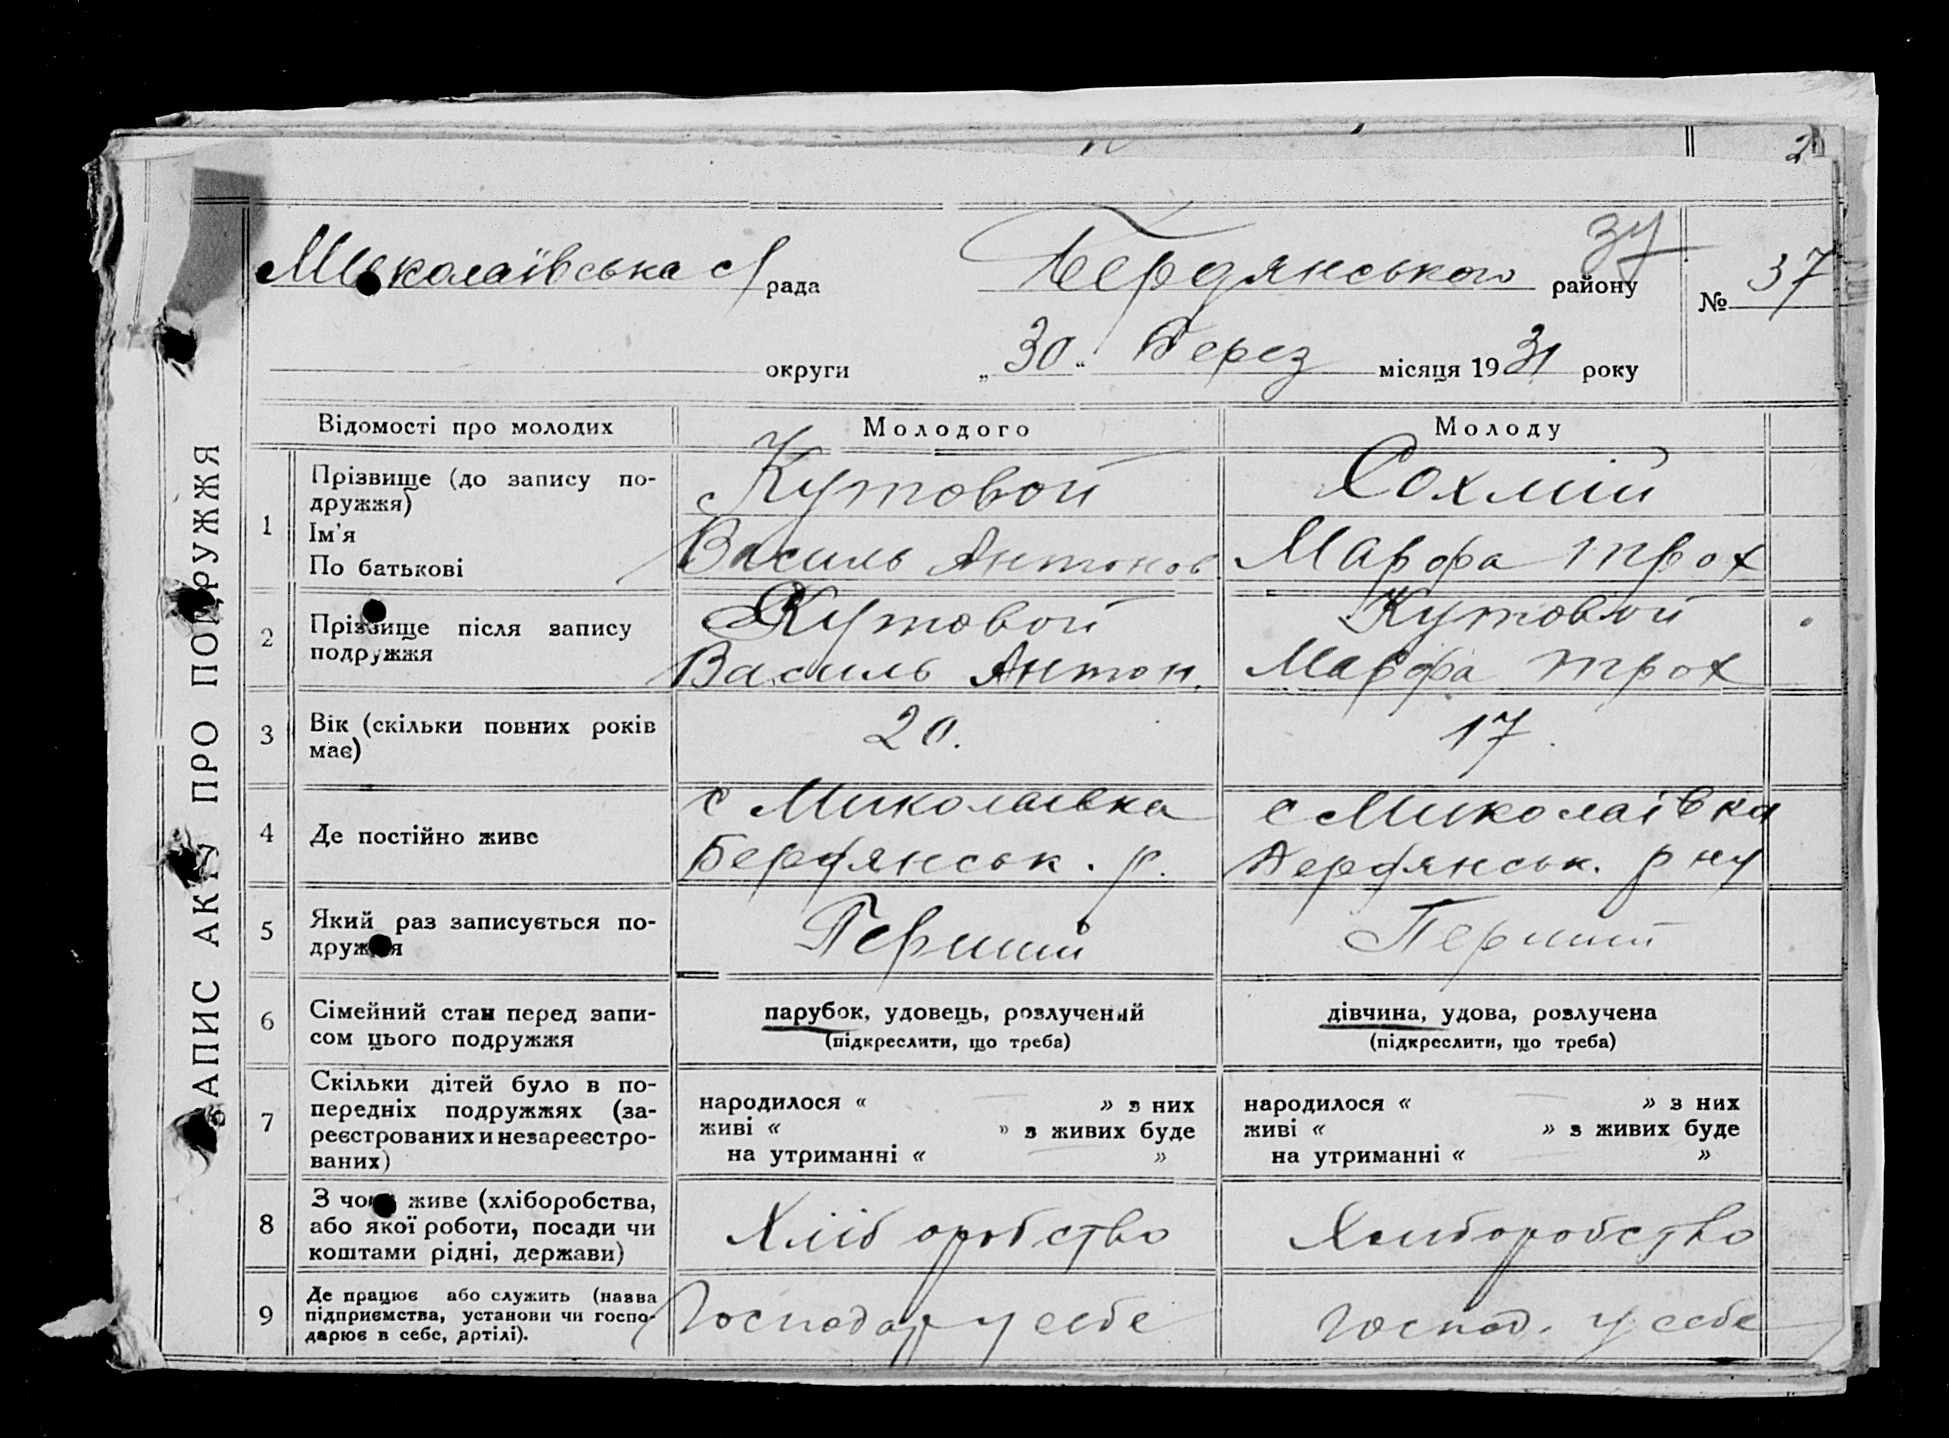 Миколаївська с/рада Бердянського району № 37
округи „30“ Берез місяця 1931 року
ЗАПИС АКТУ ПРО ПОДРУЖЖЯ
Відомості про молодих Молодого Молоду
1 Прізвище (до запису по-
дружжя) Кутовой Сохмій
Ім'я
По батькові Василь Антонов Марфа Трох
2 Прізвище після запису Кутовой Кутовой
подружжя Василь Антон. Марфа Трох
3 Вік (скільки повних років
має) 20. 17.
4 Де постійно живе с Миколаівка с Миколаівка
Бердянськ. р. Бердянськ. р ну
5 Який раз записується по-
дружжя Перший Перший
6 Сімейний стан перед запи-
сом цього подружжя
парубок, удовець, розлучений дівчина, удова, розлучена
(підкреслити, що треба) (підкреслити, що треба)
7 Скільки дітей було в по-
передніх подружжях (за-
реєстрованих и незареєстро-
ваних)
народилося « — » з них народилося « — » з них
живі « » з живих буде живі « » з живих буде
на утриманні « — » на утриманні « — »
8 З чого живе (хліборобства,
або якої роботи, посади чи
коштами рідні, держави) Хліборобство Хлиборобство
9 Де працює або служить (назва
підприємства, установи чи госпо-
дарює в себе, артілі). Господар у себе Господ. у себе